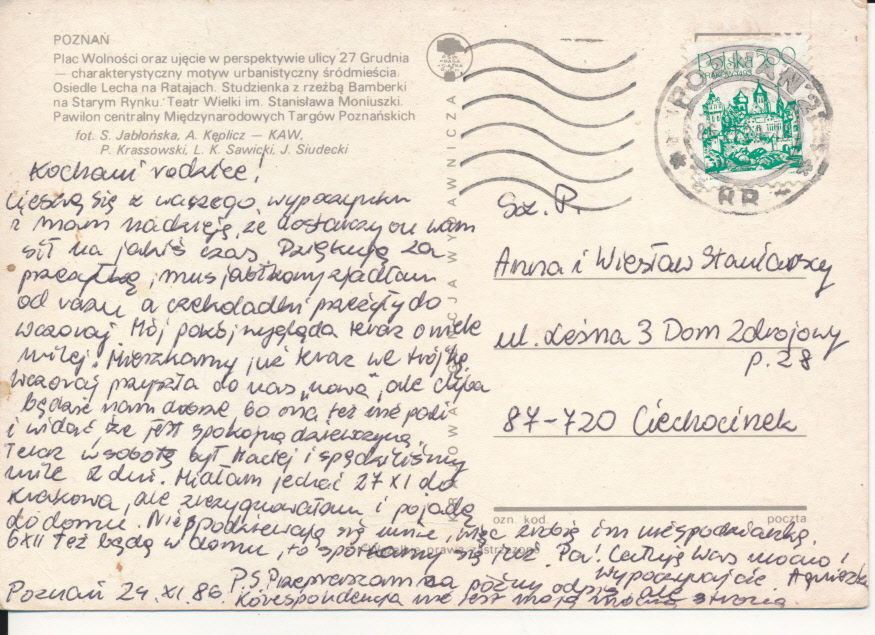 POZNAŃ
Plac Wolności oraz ujęcie w perspektywie ulicy 27 Grudnia
— charakterystyczny motyw urbanistyczny śródmieścia
Osiedle Lecha na Ratajach. Studzienka z rzeźbą Bamberki
na Starym Rynku. Teatr Wielki im. Stanisława Moniuszki.
Pawilon centralny Międzynarodowych Targów Poznańskich
fot. S. Jabłońska, A. Kęplicz — KAW,
P. Krassowski, L. K. Sawicki, J. Siudecki
Kochani rodzice!
Cieszę się z waszego wypoczynku
i mam nadzieję, że dostarczy on wam
sił na jakiś czas. Dziękuję za
przesyłkę, mus jabłkowy zjadłam
od razu a czekoladki przeżyły do
wczoraj. Mój pokój wygląda teraz o wiele
milej. Mieszkamy już teraz we trójkę
wczoraj przyszła do nas „nowa", ale chyba
będzie nam dobrze bo ona też nie pali
i widać, że jest spokojną dziewczyną.
Teraz w sobotę był Maciej i spędziliśmy
miłe 2 dni. Miałam jechać 27 XI do
Krakowa, ale zrezygnowałam i pojadę
do domu. Nie spodziewają się mnie, więc zrobię im niespodziankę.
6 XII też będą w domu, to spotkamy się już. Pa! Całuję Was mocno!
Wypoczywajcie Agnieszka
Poznań 24. XI. 86.
P.S. Przepraszam za późny odpis, ale
korespondencja nie jest moją mocną stroną.
KRAJOWA AGENCJA WYDAWNICZA
Polska 5,00
POZNAŃ 2
BB
Sz. P.
Anna i Wiesław Staniawscy
ul. Leśna 3 Dom Zdrojowy
p. 28
87-720 Ciechocinek
ozn. kod.
poczta
prawa zastrzeżone